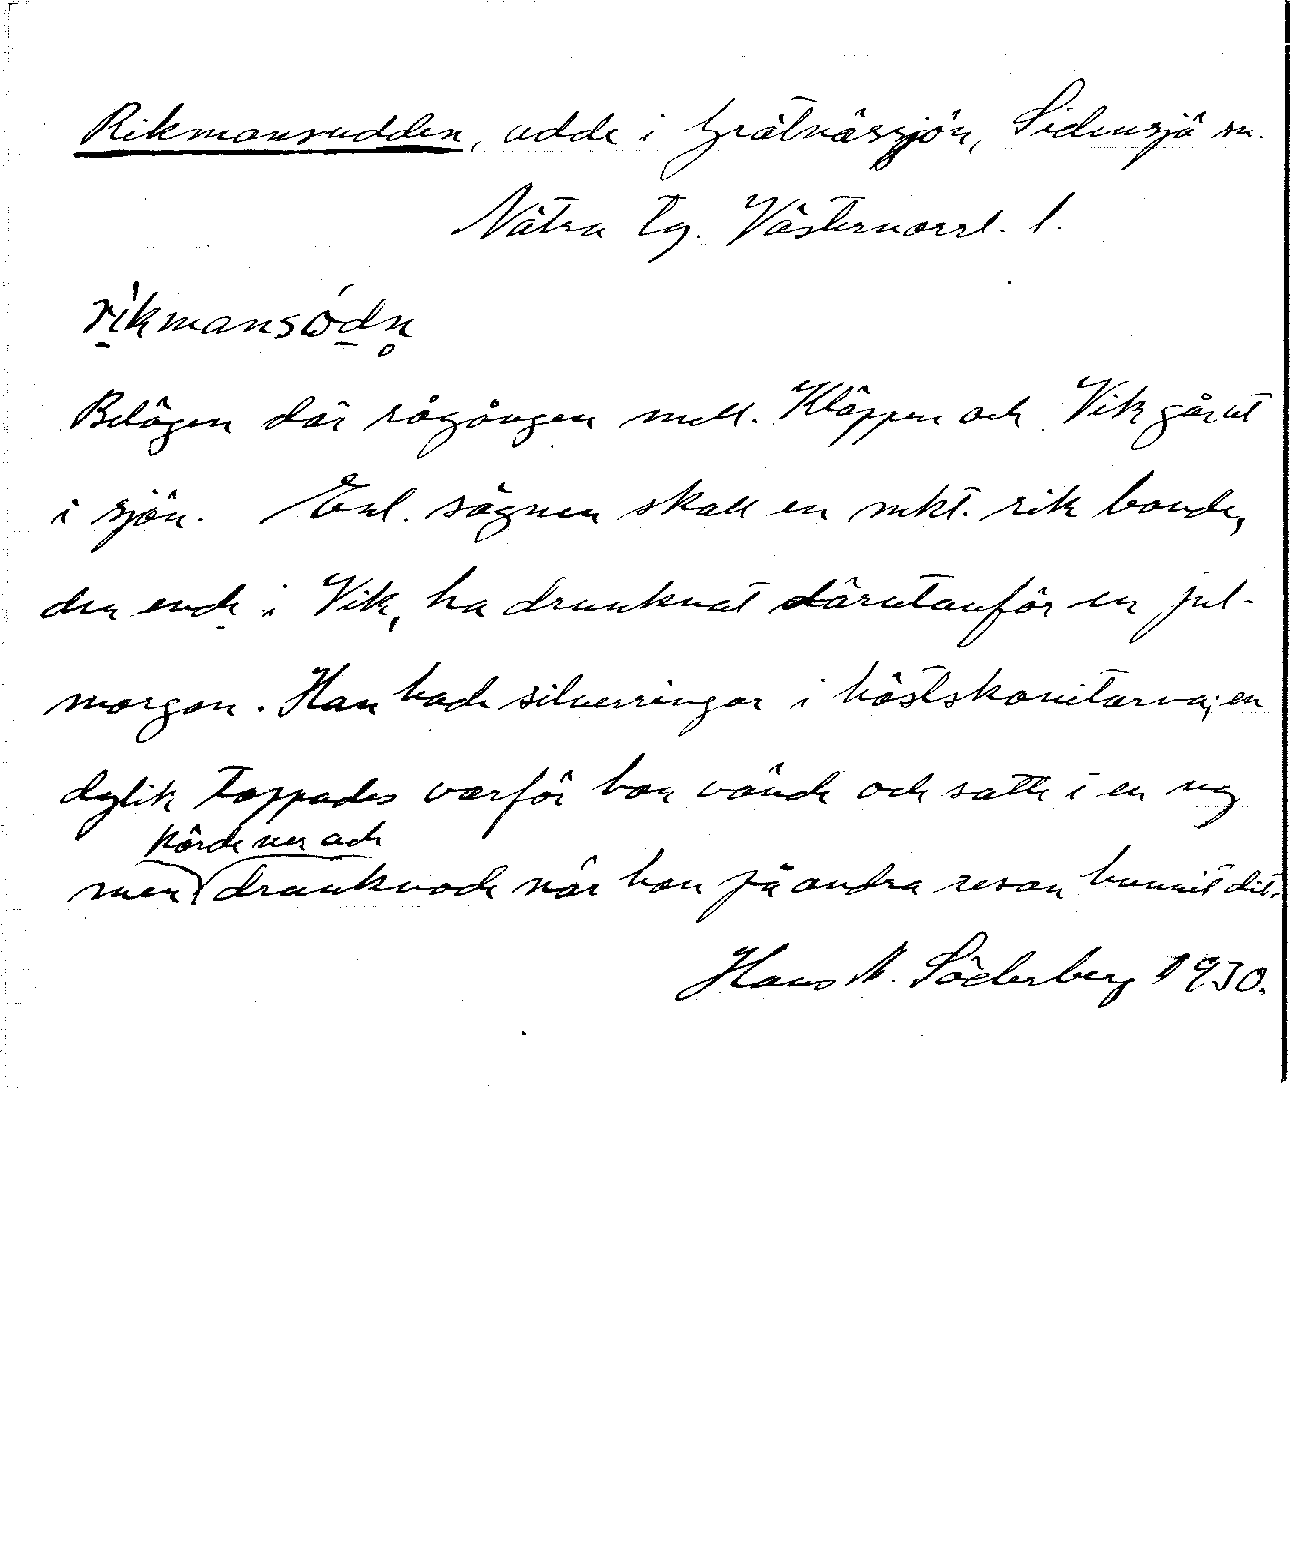 Rikmansudden, udde i Grätnässjön, Sidensjö sn.
Nätra tg. Västernorrl. l.
rikmansódn̥
Belägen där rågången mell. Kläppen och Vik går ut
i sjön. Enl. sägnen skall en mkt. rik bonde,
den ende i Vik, ha drunknat därutanför en jul-
morgon. Han hade silverringar i hästskon; en
dylik tappades varför han vände och satte i en ny
körde ner och
men drunknade när han på andra resan hunnit dit.
Hans N. Söderberg 1930.